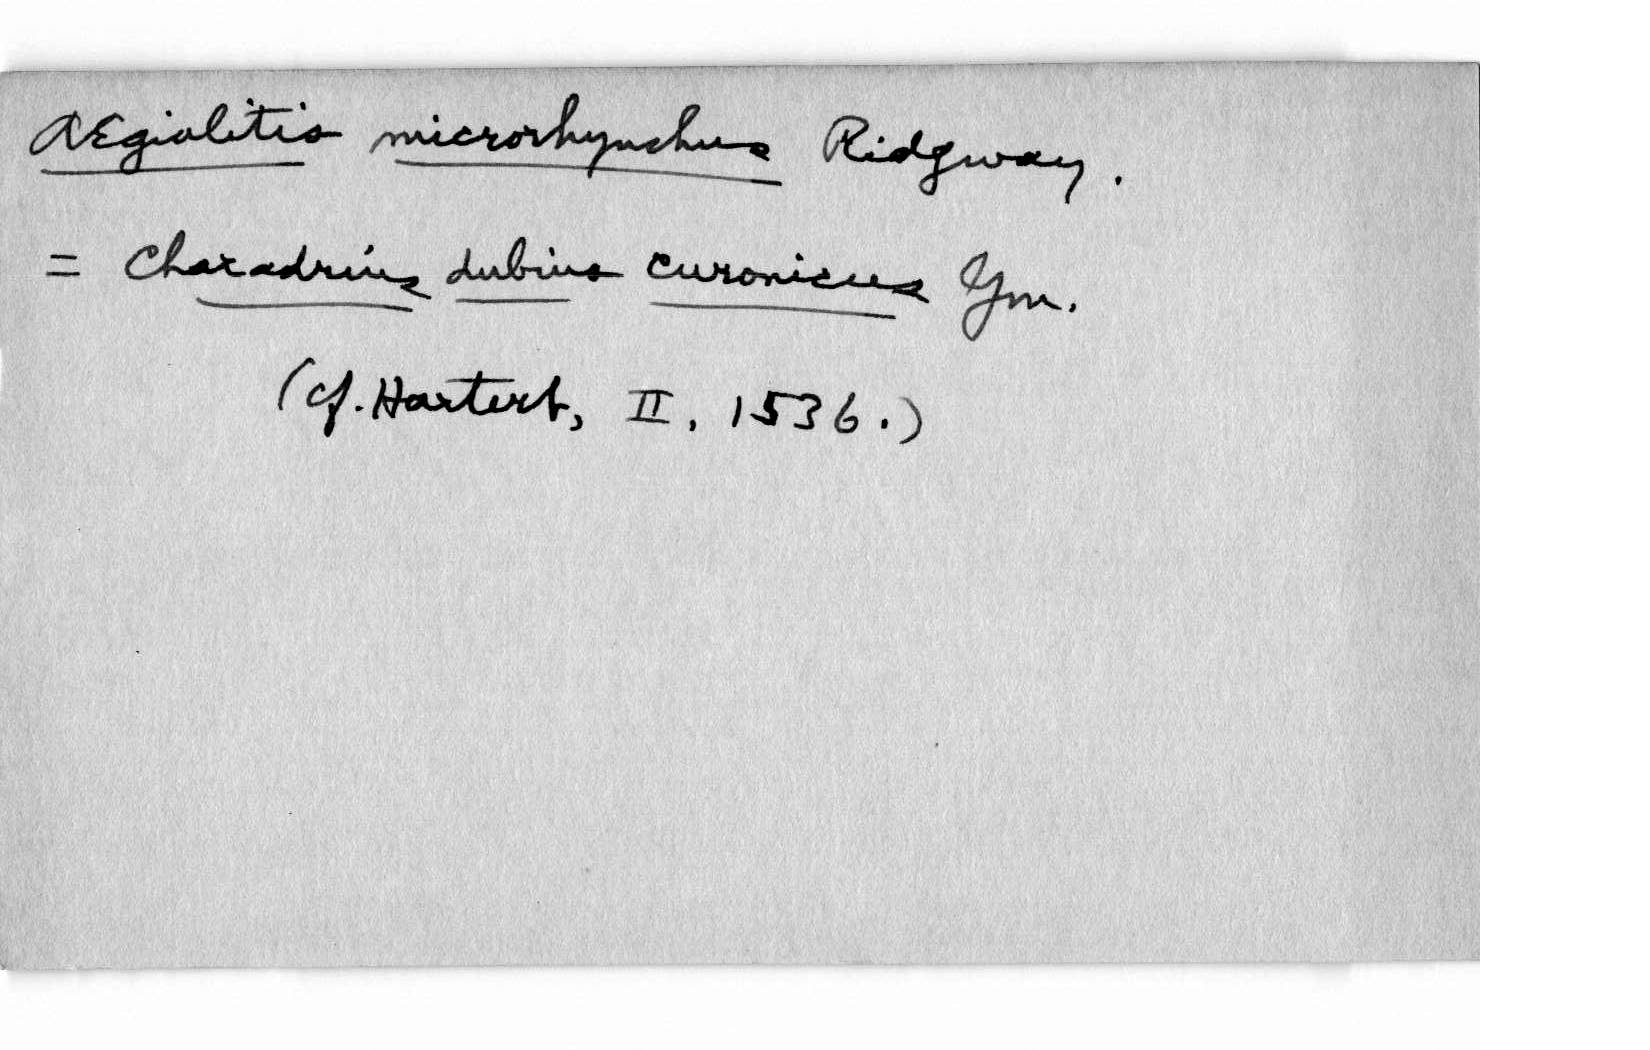 Ægialitis microrhynchus Ridgway.
= Charadrius dubius curonicus Gm.
(cf. Hartert, II, 1536.)